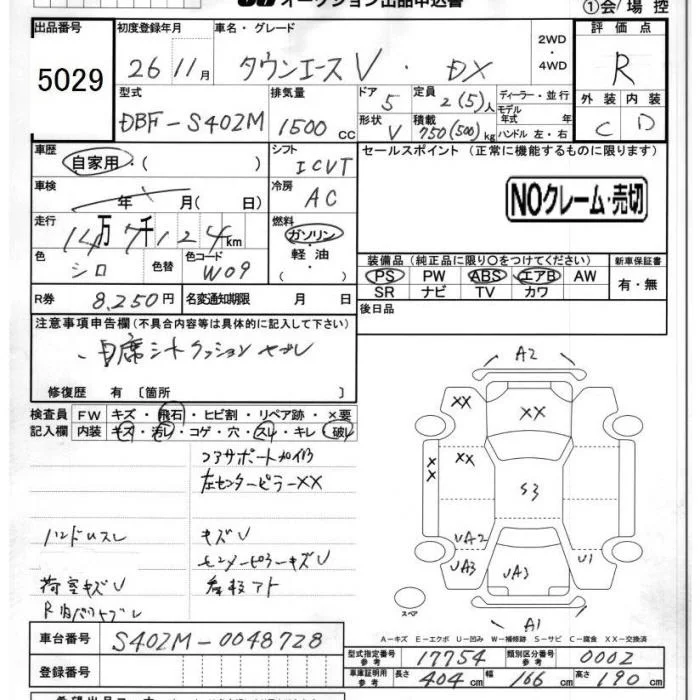 オークション出品申込書
①会場控
出品番号 初度登録年月 車名・グレード 2WD・4WD 評価点
5029 26 11月 タウンエースV・DX R
型式 排気量 ドア 定員 ディーラー・並行 外装 内装
DBF-S402M 1500cc 5 2(5)人 モデル年式 年 C D
形状 V 積載 750(500)kg ハンドル 左・右
車歴 自家用・( ) シフト ICVT セールスポイント(正常に機能するものに限ります)
車検 年 月(日) 冷房 AC NOクレーム・売切
走行 14万7千124km 燃料 ガソリン・軽油・( )
色 シロ 色替 色コード W09
装備品(純正品に限り〇をつけてください) 新車保証書
PS PW ABS エアB AW 有・無
SR ナビ TV カワ
R券 8,250円 名変通知期限 月 日 後日品
注意事項申告欄(不具合内容等は具体的に記入して下さい)
修復歴 有 〔箇所 〕
検査員 FW キズ・飛石・ヒビ割・リペア跡・×要
記入欄 内装 キズ・汚レ・コゲ・穴・スレ・キレ・破レ
コアサポート
左センターピラーXX
ハンドルスレ キズU
荷室キズU
A2
XX XX
XX XX
S3
UA2
UA3 UA3 U1
スペア
A1
A-キズ E-エクボ U-凹み W-補修跡 S-サビ C-腐食 XX-交換済
車台番号 S402M-0048728
登録番号
型式指定番号 参考 17754 類別区分番号 参考 0002
車庫証明用 参考 長さ 404cm 幅 166cm 高さ 190cm